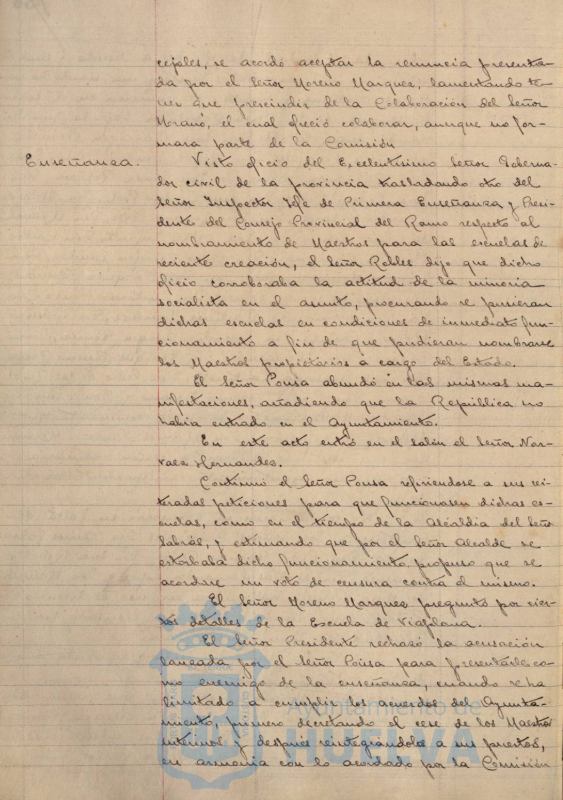 cejales, se acordó aceptar la renuncia presenta-
da por el Señor Moreno Marquez, lamentando te-
ner que prescindir de la Colaboración del Señor
Moreno, el cual ofreció colaborar, aunque no for-
mara parte de la Comisión
Enseñanza.
Visto oficio del Excelentisimo Señor Goberna-
dor civil de la provincia trasladando otro del
Señor Inspector Jefe de Primera Enseñanza y Presi-
dente del Consejo Provincial del Ramo respecto al
nombramiento de Maestros para las escuelas de
reciente creación, el Señor Robles dijo que dicho
oficio corroboraba la actitud de la minoria
socialista en el asunto, procurando se pusieran
dichas escuelas en condiciones de inmediato fun-
cionamiento a fin de que pudieran nombrarse
los Maestros propietarios a cargo del Estado.
El Señor Ponsa abundó en las mismas ma-
nifestaciones, añadiendo que la República no
habia entrado en el Ayuntamiento.
En este acto entró en el salón el Señor Nar-
vaez Hernandez.
Continuó el Señor Ponsa refiriendose a sus rei-
teradas peticiones para que funcionasen dichas es-
cuelas, como en el tiempo de la Alcaldia del Señor
y estimando que por el Señor Alcalde se
estorbaba dicho funcionamiento, propuso que se
acordase un voto de censura contra el mismo.
El Señor Moreno Marquez preguntó por cier-
tos detalles de la Escuela de Viaplana.
El Señor Presidente rechazó la acusación
lanzada por el Señor Ponsa para presentarle co-
mo enemigo de la enseñanza, cuando se ha
limitado a cumplir los acuerdos del Ayunta-
miento, primero decretando el cese de los Maestros
interinos, y despues reintegrandola a sus puestos,
en armonia con lo acordado por la Comisión
Ayuntamiento de
HUELVA